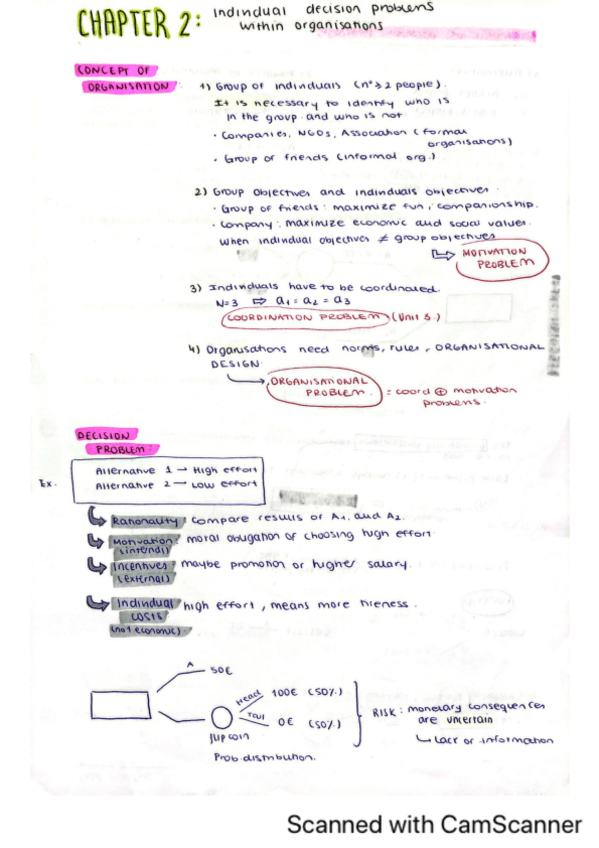 CHAPTER 2: Individual decision problems
within organisations
CONCEPT OF
ORGANISATION:
1) Group of individuals (nº ≥ 2 people).
It is necessary to identify who is
in the group and who is not.
· Companies, NGOs, Association (formal
organisations)
· Group of friends (informal org.)
2) Group objectives and individuals objectives.
· Group of friends: maximize fun, companionship.
· Company: maximize economic and social values.
When individual objectives ≠ group objectives
MOTIVATION
PROBLEM
3) Individuals have to be coordinated.
N=3 ⇨ a1 = a2 = a3
COORDINATION PROBLEM (Unit 3.)
4) Organisations need norms, rules, ORGANISATIONAL
DESIGN.
ORGANISATIONAL
PROBLEM. = coord ⊕ motivation
problems.
DECISION
PROBLEM:
Ex.
Alternative 1 → High effort
Alternative 2 → Low effort
Rationality: compare results of A1 and A2.
Motivation: moral obligation of choosing high effort.
(internal)
Incentives: maybe promotion or higher salary.
(external)
Individual high effort, means more tireness.
costs
(not economic).
A
50€
Head 100€ (50%)
Tail 0€ (50%)
flip coin
Prob. distribution.
RISK: monetary consequences
are uncertain
↳ Lack of information
Scanned with CamScanner